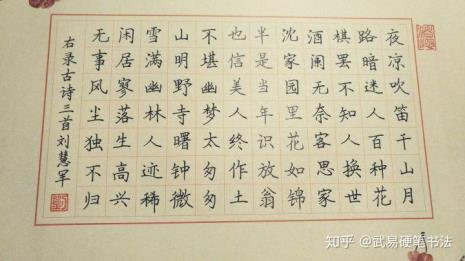 夜凉吹笛千山月
路暗迷人百种花
棋罢不知人换世
酒阑无奈客思家
沈家园里花如锦
半是当年识放翁
也信美人终作土
不堪幽梦太匆匆
山明野寺曙钟微
雪满幽林人迹稀
闲居寥落生高兴
无事风尘独不归
右录古诗三首刘慧军
知乎 @武易硬笔书法